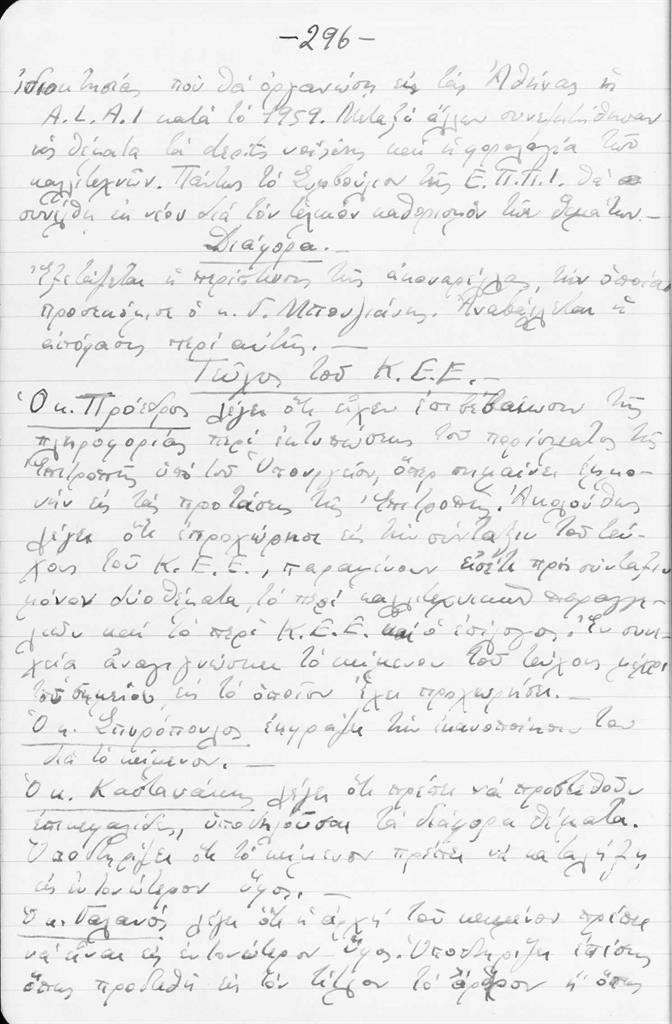 -296-
ἰδιοκτησίας ποὺ θὰ ὀργανώση εἰς τὰς Ἀθήνας ἡ
A.L.A.I κατὰ τὸ 1959. Μεταξὺ ἄλλων συνεζητήθησαν
ὡς θέματα τὰ καὶ ἡ φορολογία τῶν
καλλιτεχνῶν. Πάντως τὸ Συμβούλιον τῆς Ε.Π.Π.Ι. θὰ
συνέλθη ἐκ νέου διὰ τὸν τελικὸν καθορισμὸν τῶν θεμάτων.-
Διάφορα.-
Ἐξετάζεται ἡ περίπτωσις τῆς ἀκουαρέλλας, τὴν ὁποίαν
προσεκόμισε ὁ κ. Δ. Μπουλιάνης. Ἀναβάλλεται ἡ
ἀπόφασις περὶ αὐτῆς.-
Τεῦχος τοῦ Κ.Ε.Ε.-
Ὁ κ. Πρόεδρος λέγει ὅτι εἶχεν ἐπιβεβαίωσιν τῆς
πληροφορίας περὶ ἐκτυπώσεως τοῦ πορίσματος τῆς
Ἐπιτροπῆς ὑπὸ τοῦ Ὑπουργείου, ὅπερ σημαίνει
εἰς τὰς προτάσεις τῆς Ἐπιτροπῆς. Ἀκολούθως
λέγει ὅτι ἐπροχώρησε εἰς τὴν σύνταξιν τοῦ τεύ-
χους τοῦ Κ.Ε.Ε., παραμένουν εἰσέτι πρὸς σύνταξιν
μόνον δύο θέματα, τὸ περὶ καλλιτεχνικῶν παραγγε-
λιῶν καὶ τὸ περὶ Κ.Ε.Ε. καὶ ὁ ἐπίλογος. Ἐν συνε-
χείᾳ ἀναγιγνώσκει τὸ κείμενον τοῦ τεύχους μέχρι
τοῦ σημείου, εἰς τὸ ὁποῖον ἔχει προχωρήσει.-
Ὁ κ. Σπυρόπουλος ἐκφράζει τὴν ἱκανοποίησίν του
διὰ τὸ κείμενον.-
Ὁ κ. Καστανάκης λέγει ὅτι πρέπει νὰ προστεθοῦν
ἐπικεφαλίδες, ὑποδηλοῦσαι τὰ διάφορα θέματα.
Ὑποστηρίζει ὅτι τὸ κείμενον πρέπει νὰ καταλήξη
εἰς ἐντονώτερον ὕφος.-
Ὁ κ. Γαλανός λέγει ὅτι ἡ ἀρχὴ τοῦ κειμένου πρέπει
νὰ εἶναι εἰς ἐντονώτερον ὕφος. Ὑποστηρίζει ἐπίσης
ὅπως προστεθῆ εἰς τὸν τίτλον τὸ ἄρθρον ἡ ὅπως